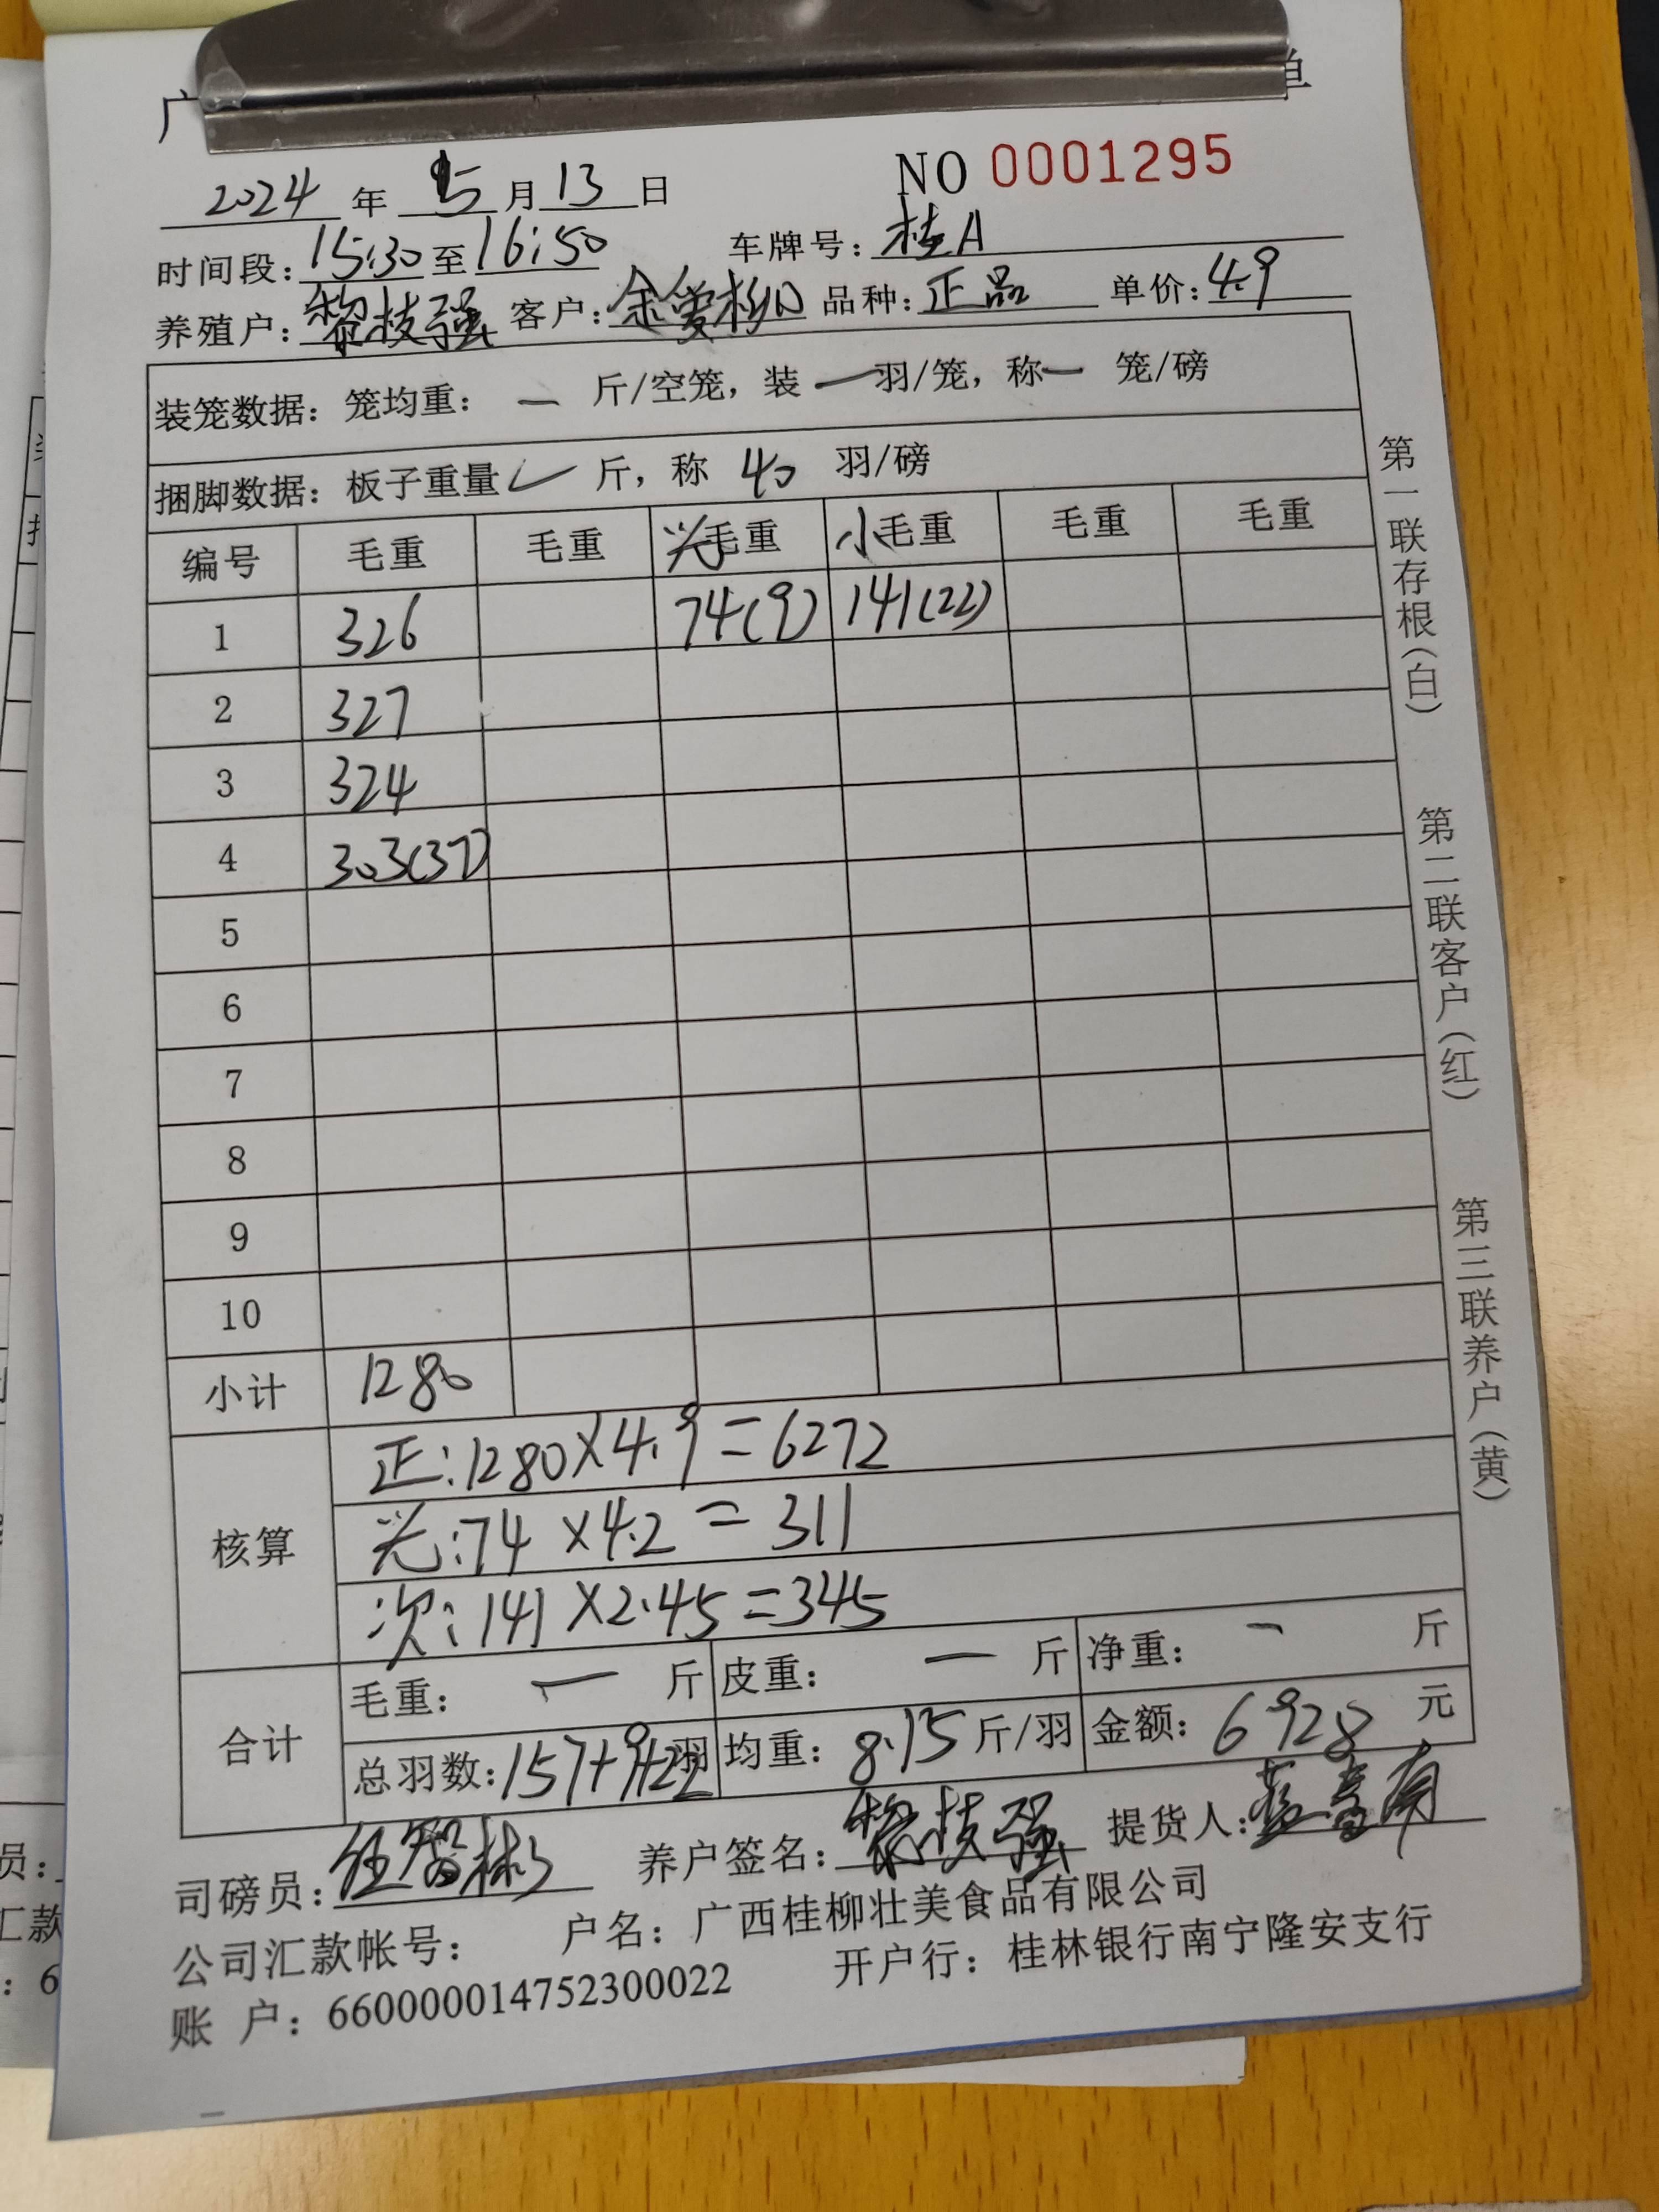 广 单
NO 0001295
2024 年 5 月 13 日
时间段：15:30 至 16:50 车牌号：桂A
养殖户：黎枝强 客户： 品种：正品 单价：4.9
装笼数据：笼均重： — 斤/空笼，装 — 羽/笼，称 — 笼/磅
捆脚数据：板子重量 ✓ 斤，称 40 羽/磅
编号 毛重 毛重 光毛重 小毛重 毛重 毛重
1 326 74(9) 141(22)
2 327
3 324
4 303(37)
5
6
7
8
9
10
小计 1280
核算
正：1280×4.9=6272
光：74×4.2=311
次：141×2.45=345
合计
毛重： — 斤 皮重： — 斤 净重： — 斤
总羽数：157+9+22羽 均重：8.15 斤/羽 金额：6928 元
司磅员：任智彬 养户签名：黎枝强 提货人：
公司汇款帐号： 户名：广西桂柳壮美食品有限公司
账 户：660000014752300022 开户行：桂林银行南宁隆安支行
第一联存根（白）
第二联客户（红）
第三联养户（黄）
员：
汇款
：6